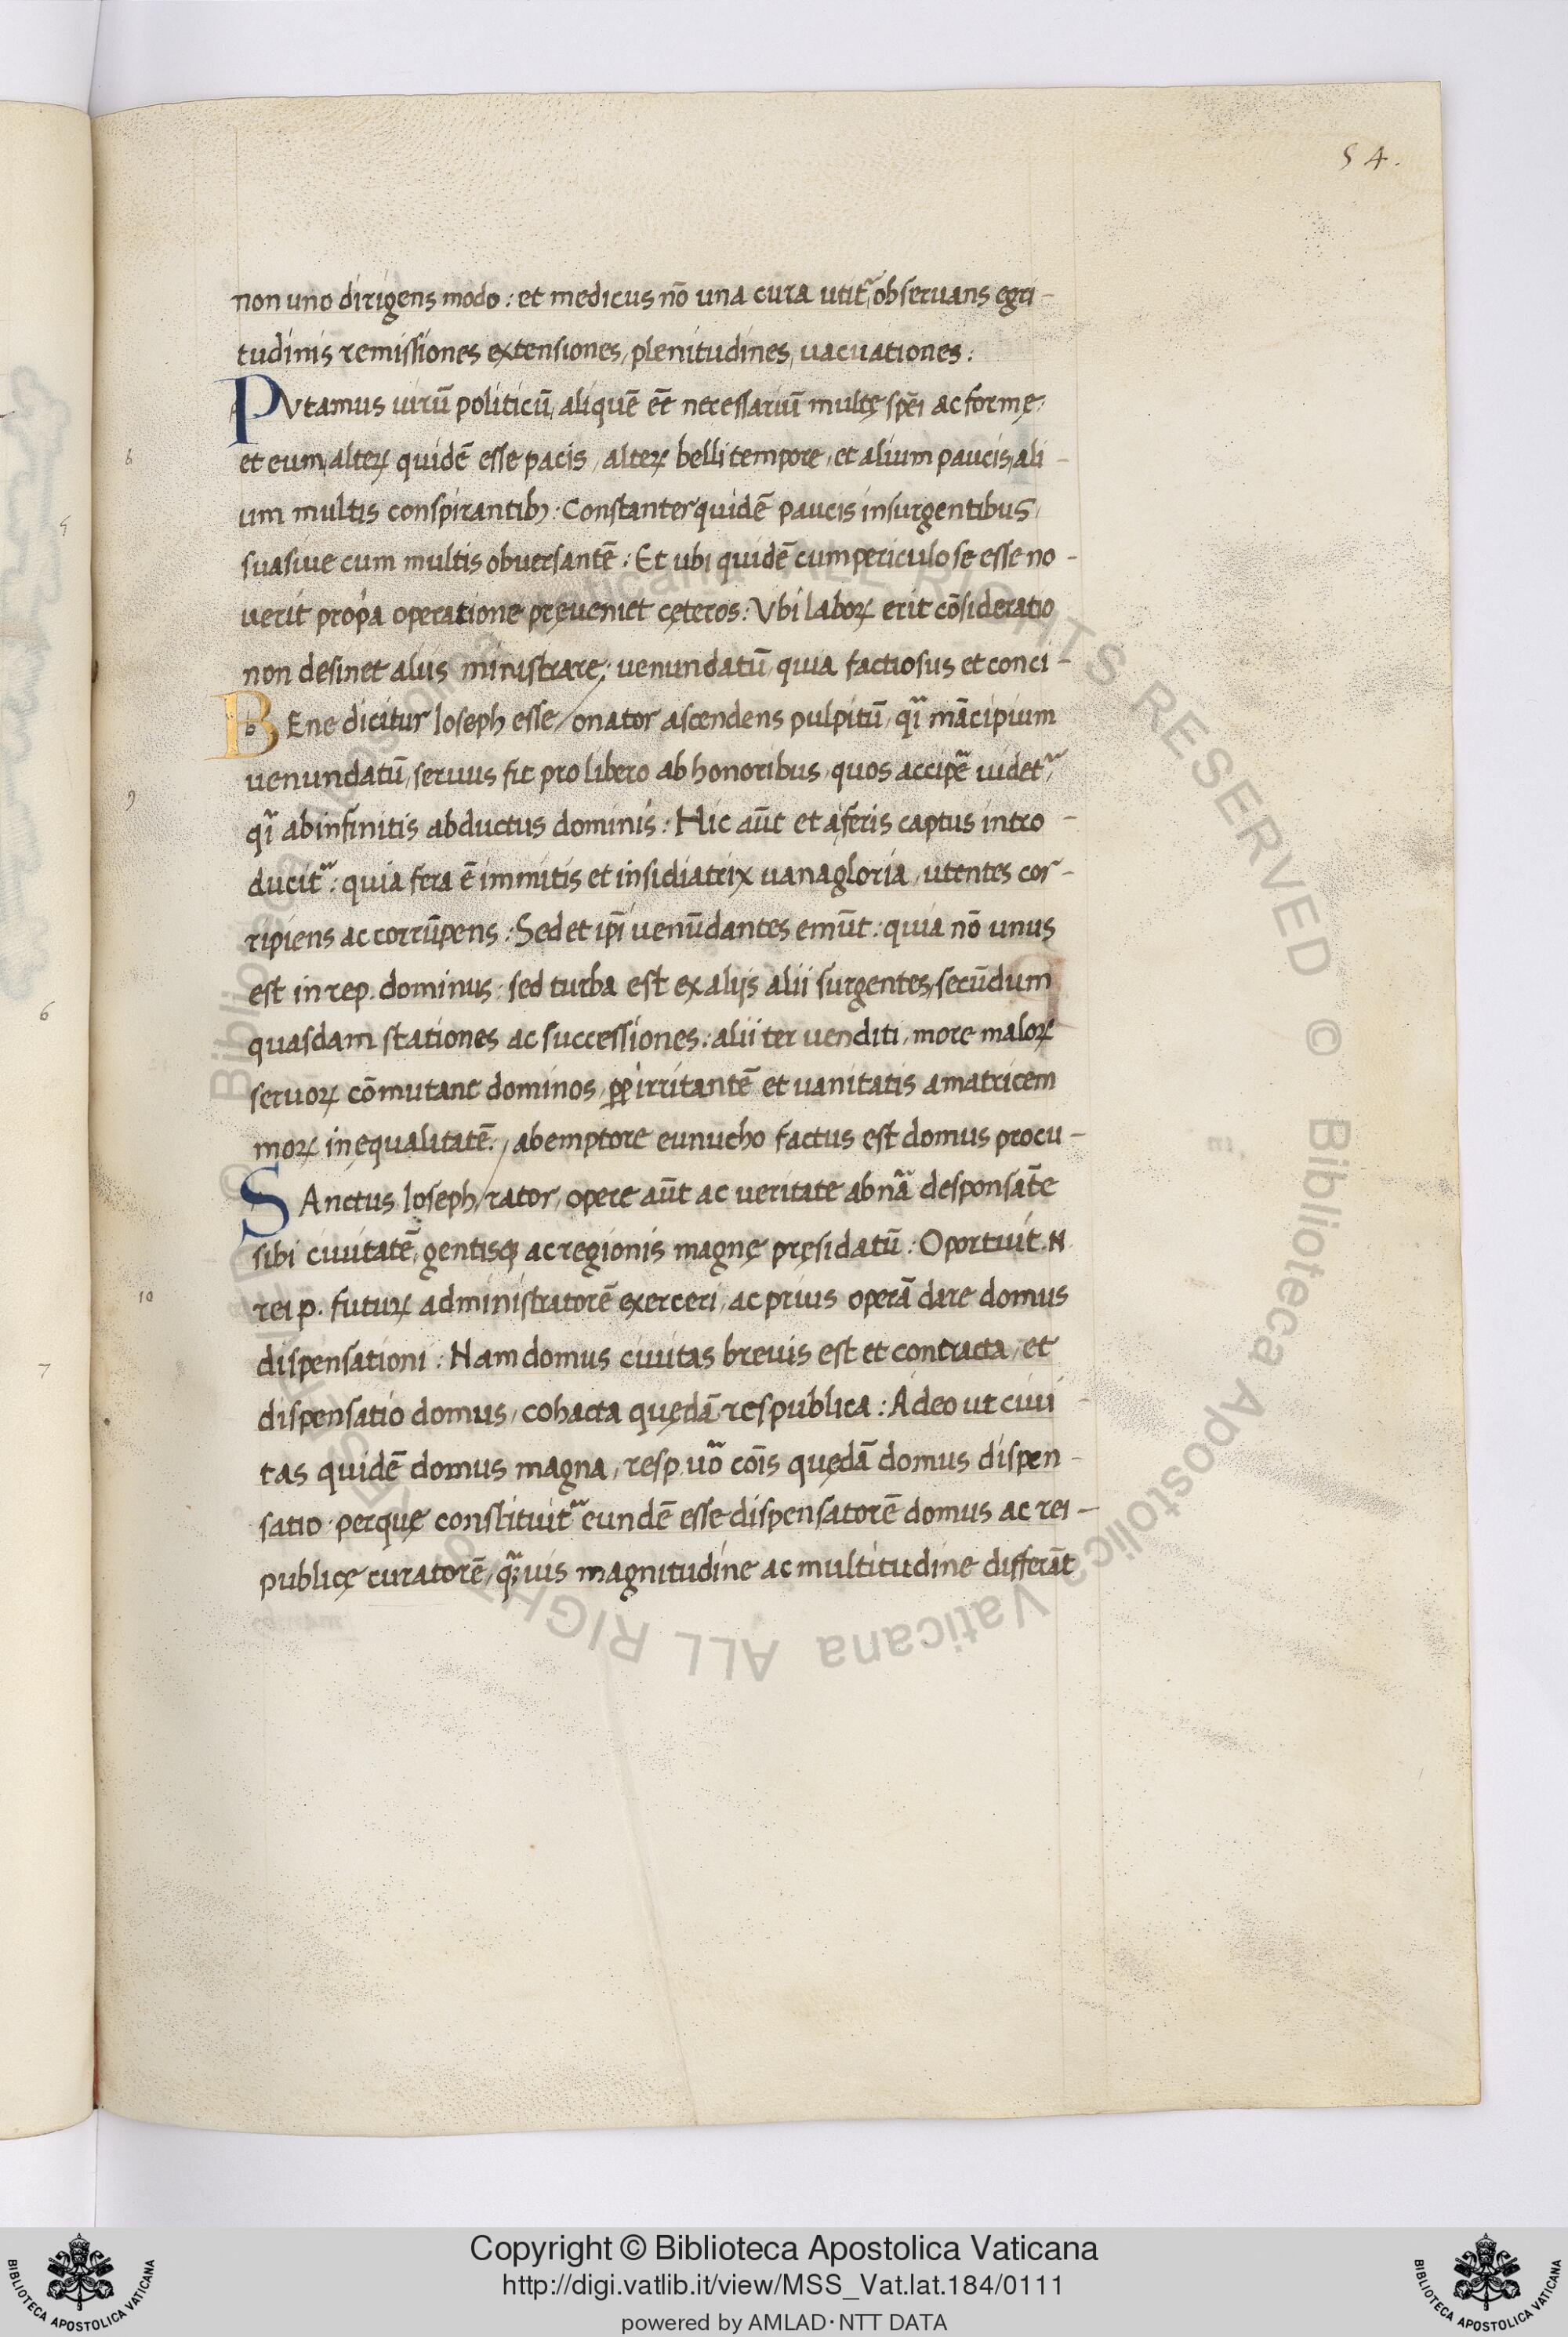 54.
non uno dirigens modo: et medicus nō una cura utit᷑, obseruans egri-
tudinis remissiones extensiones, plenitudines, uacuationes:
PVtamus uirū politicū, aliquē eē necessariū multę spēi ac formę:
8 et eum, alteꝝ quidē esse pacis, alteꝝ belli tempore, et alium paucis, ali-
um multis conspirantibꝫ: Constanter quidē paucis insurgentibus,
suasiue cum multis obuersantē: Et ubi quidē cum periculo se esse no-
uerit propa operatione pręueniet cęteros: Vbi laboꝝ erit cōsideratio
non desinet aliis ministrare: uenundatū, quia factiosus et conci-
BEne dicitur Ioseph esse / onator ascendens pulpitū, qi᷑ mācipium
uenundatū, seruus fit pro libero ab honoribus, quos accipē uidet᷑,
9 qi᷑ ab infinitis abductus dominis: Hic aūt et a feris captus intro-
ducit᷑: quia fera ē immitis et insidiatrix uana gloria, utentes cor-
ripiens ac corrūpens: Sed et ipi᷑ uenūdantes emūt: quia nō unus
est in rep. dominus: sed turba est ex alijs alii surgentes, secūdum
quasdam stationes ac successiones: alii ter uenditi, more maloꝝ
seruoꝝ cōmutant dominos, ꝓꝑ irritantē et uanitatis amatricem
moꝝ inęqualitatē: / ab emptore eunucho factus est domus procu-
SAnctus Ioseph / rator, opere aūt ac ueritate ab nr̄a desponsāte
sibi ciuitatē, gentisqꝫ ac regionis magnę pręsidatū: Oportuit .N.
10 rei p. futuꝝ administratorē exerceri, ac prius operā dare domus
dispensationi: Nam domus ciuitas breuis est et contracta, et
dispensatio domus, cohacta quędā respublica: Adeo ut ciui-
tas quidē domus magna, resp. uō cōis quędā domus dispen-
satio perquę constituit᷑ eundē esse dispensatorē domus ac rei-
publicę curatorē, q̄uis magnitudine ac multitudine differāt
5
6
7
© Biblioteca Apostolica Vaticana ALL RIGHTS RESERVED
© Biblioteca Apostolica Vaticana ALL RIGHTS RESERVED
Copyright © Biblioteca Apostolica Vaticana
http://digi.vatlib.it/view/MSS_Vat.lat.184/0111
powered by AMLAD·NTT DATA
BIBLIOTECA APOSTOLICA VATICANA
BIBLIOTECA APOSTOLICA VATICANA